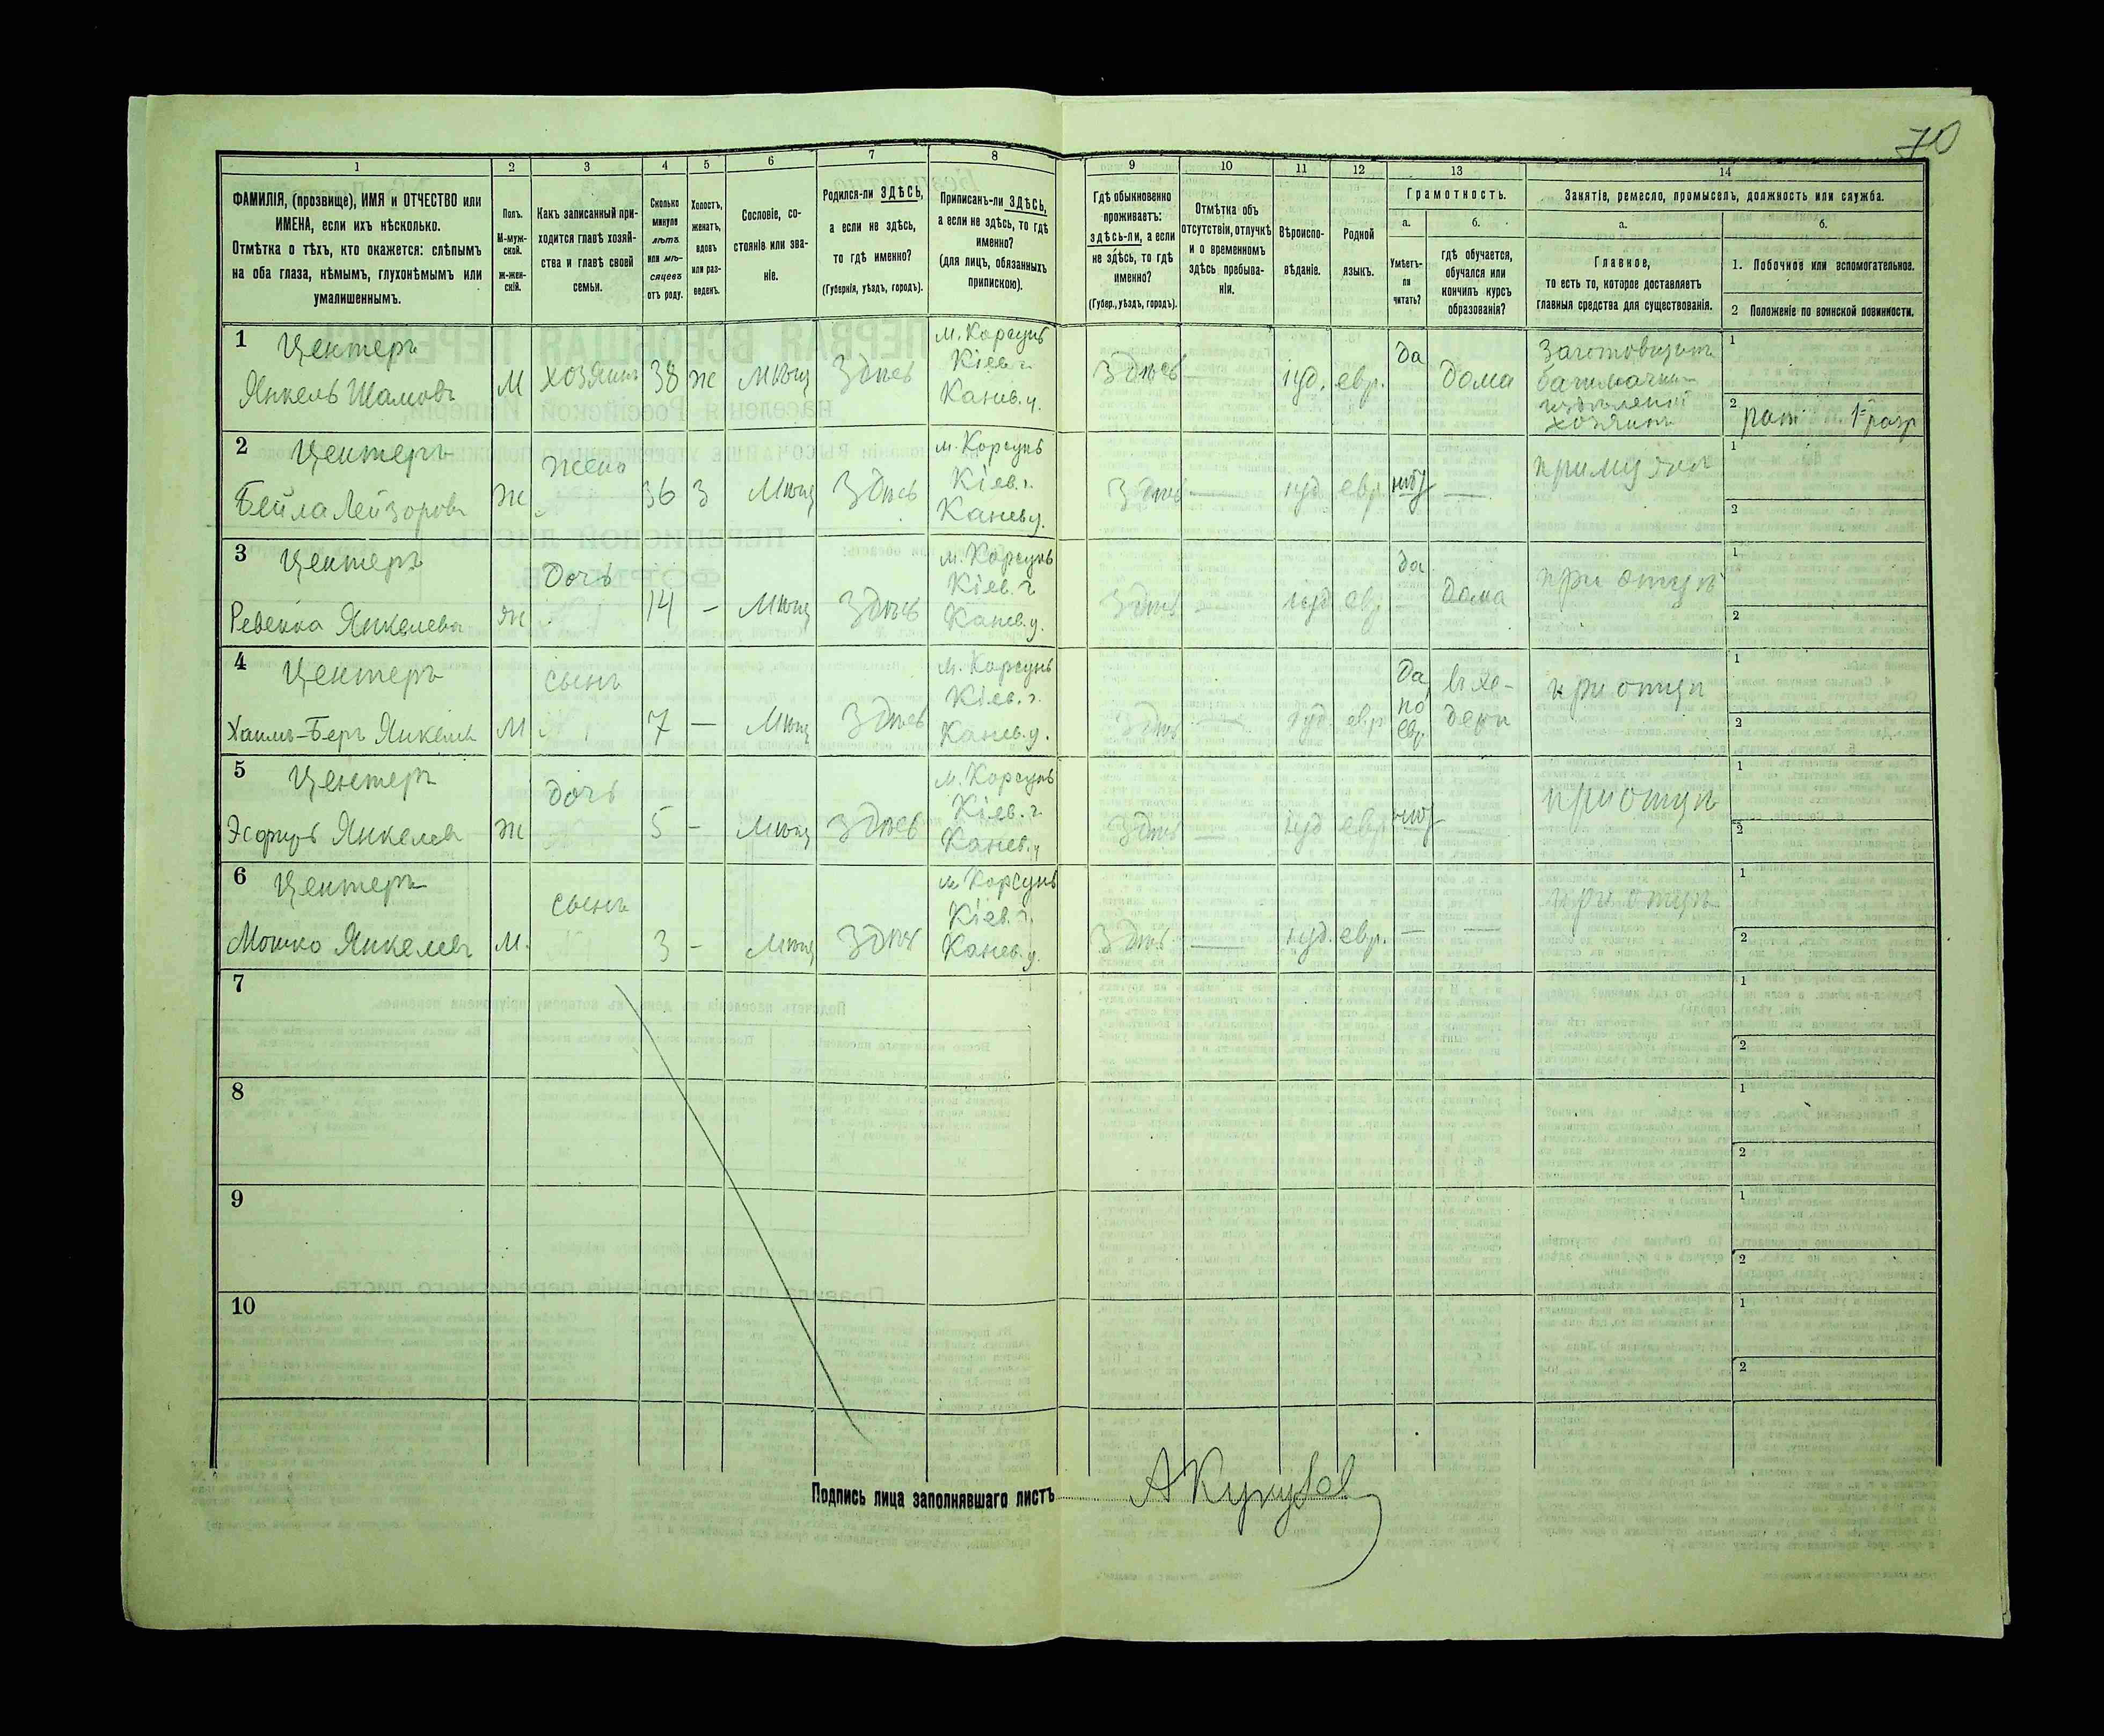 70
1
2
3
4
5
6
7
8
9
10
11
12
13
14
ФАМИЛІЯ, (прозвище), ИМЯ и ОТЧЕСТВО или
ИМЕНА, если ихъ нѣсколько.
Отмѣтка о тѣхъ, кто окажется: слѣпымъ
на оба глаза, нѣмымъ, глухонѣмымъ или
умалишеннымъ.
Полъ.
М-муж-
ской.
ж-жен-
скій.
Какъ записанный при-
ходится главѣ хозяй-
ства и главѣ своей
семьи.
Сколько
минуло
лѣтъ
или мѣ-
сяцевъ
отъ роду.
Холостъ,
женатъ,
вдовъ
или раз-
веденъ.
Сословіе, со-
стояніе или зва-
ніе.
Родился-ли ЗДѢСЬ,
а если не здѣсь,
то гдѣ именно?
(Губернія, уѣздъ, городъ).
Приписанъ-ли ЗДѢСЬ,
а если не здѣсь, то гдѣ
именно?
(для лицъ, обязанныхъ
припискою).
Гдѣ обыкновенно
проживаетъ:
здѣсь-ли, а если
не здѣсь, то гдѣ
именно?
(Губер., уѣздъ, городъ).
Отмѣтка объ
отсутствіи, отлучкѣ
и о временномъ
здѣсь пребыва-
ніи.
Вѣроиспо-
вѣданіе.
Родной
языкъ.
Грамотность.
а.
Умѣетъ-
ли
читать?
б.
гдѣ обучается,
обучался или
кончилъ курсъ
образованія?
Занятіе, ремесло, промыселъ, должность или служба.
а.
Главное,
то есть то, которое доставляетъ
главныя средства для существованія.
б.
1. Побочное или вспомогательное.
2 Положеніе по воинской повинности.
1 Центеръ
Янкель Шамовъ М хозяинъ 38 ж Мѣщ Здѣсь м. Корсунь Кіев. г. Канев. у. Здѣсь — іуд. евр. да дома
хозяинъ
1
2 1 разр
2 Центеръ
Бейла Лейзорова ж жена 36 З Мѣщ Здѣсь м. Корсунь Кіев. г. Канев у. Здѣсь — іуд евр. — при мужѣ
1
2
3 Центеръ
Ревекка Янкелева ж дочь 14 – Мѣщ Здѣсь м. Корсунь Кіев. г. Канев. у. Здѣсь — іуд евр да дома при отцѣ
1
2
4 Центеръ
Хаимъ-Беръ Янкелев М сынъ 7 — Мѣщ Здѣсь м. Корсунь Кіев. г. Канев. у. Здѣсь — іуд. евр да, по евр. въ хе-дерѣ при отцѣ
1
2
5 Центеръ
Эсфирь Янкелев ж дочь 5 – Мѣщ Здѣсь м. Корсунь Кіев. г. Канев. у Здѣсь — іуд евр — при отцѣ
1
2
6 Центеръ
Мошко Янкелев М. сынъ 3 – Мѣщ Здѣсь м Корсунь Кіев. г. Канев. у. Здѣсь — іуд. евр. — — при отцѣ
1
2
7
1
2
8
1
2
9
1
2
10
1
2
Подпись лица заполнявшаго листъ